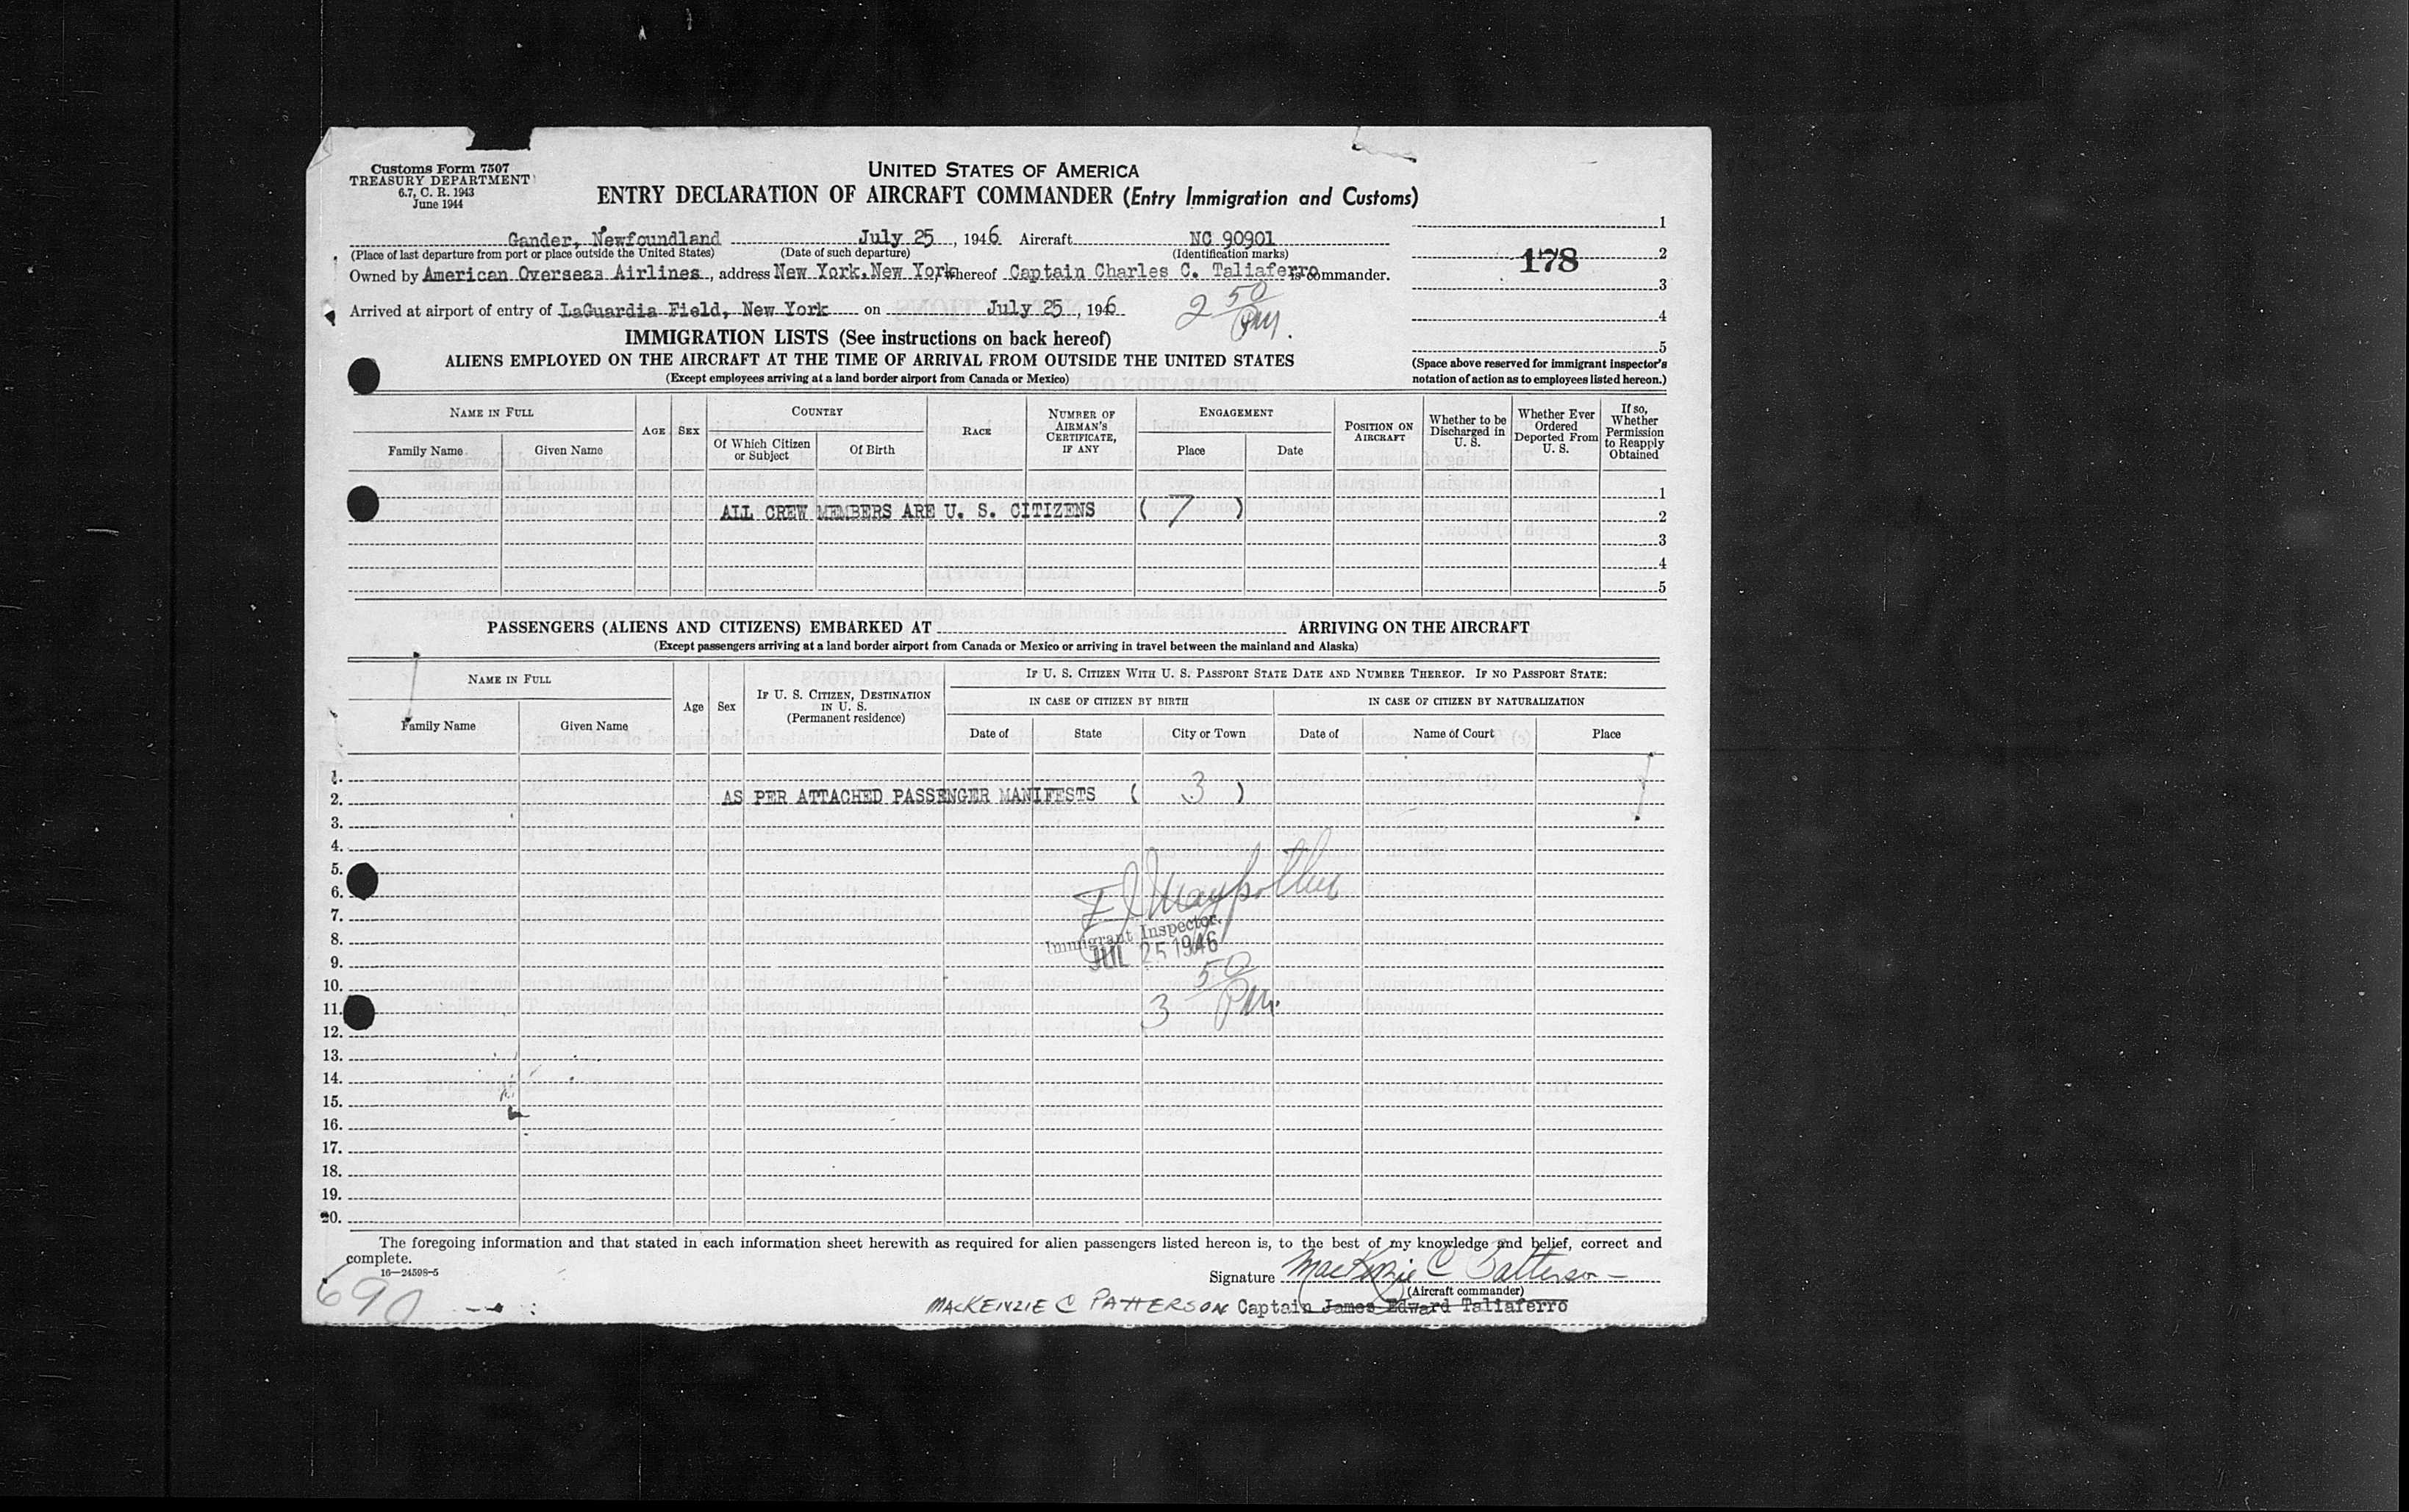 Customs Form 7507
TREASURY DEPARTMENT
6.7, C. R. 1943
June 1944
UNITED STATES OF AMERICA
ENTRY DECLARATION OF AIRCRAFT COMMANDER (Entry Immigration and Customs)
Gander, Newfoundland July 25, 1946 Aircraft NC 90901
(Place of last departure from port or place outside the United States) (Date of such departure) (Identification marks)
Owned by American Overseas Airlines, address New York, New York, whereof Captain Charles C. Taliaferro is commander.
Arrived at airport of entry of LaGuardia Field, New York on July 25, 1946
2 50 PM.
1
2
178
3
4
5
(Space above reserved for immigrant inspector's
notation of action as to employees listed hereon.)
IMMIGRATION LISTS (See instructions on back hereof)
ALIENS EMPLOYED ON THE AIRCRAFT AT THE TIME OF ARRIVAL FROM OUTSIDE THE UNITED STATES
(Except employees arriving at a land border airport from Canada or Mexico)
NAME IN FULL
Family Name Given Name
AGE
SEX
COUNTRY
Of Which Citizen or Subject Of Birth
RACE
NUMBER OF AIRMAN'S CERTIFICATE, IF ANY
ENGAGEMENT
Place Date
POSITION ON AIRCRAFT
Whether to be Discharged in U. S.
Whether Ever Ordered Deported From U. S.
If so, Whether Permission to Reapply Obtained
1
ALL CREW MEMBERS ARE U. S. CITIZENS ( 7 ) 2
3
4
5
PASSENGERS (ALIENS AND CITIZENS) EMBARKED AT ARRIVING ON THE AIRCRAFT
(Except passengers arriving at a land border airport from Canada or Mexico or arriving in travel between the mainland and Alaska)
NAME IN FULL
Family Name Given Name
Age
Sex
IF U. S. CITIZEN, DESTINATION IN U. S. (Permanent residence)
IF U. S. CITIZEN WITH U. S. PASSPORT STATE DATE AND NUMBER THEREOF. IF NO PASSPORT STATE:
IN CASE OF CITIZEN BY BIRTH IN CASE OF CITIZEN BY NATURALIZATION
Date of State City or Town Date of Name of Court Place
1.
2. AS PER ATTACHED PASSENGER MANIFESTS ( 3 )
3.
4.
5.
6.
7.
8. Immigrant Inspector.
JUL 25 1946
9.
10.
11. 3 50 PM.
12.
13.
14.
15.
16.
17.
18.
19.
20.
The foregoing information and that stated in each information sheet herewith as required for alien passengers listed hereon is, to the best of my knowledge and belief, correct and
complete.
16—24598-5
Signature MacKenzie C Patterson
(Aircraft commander)
MACKENZIE C PATTERSON Captain James Edward Taliaferro
690